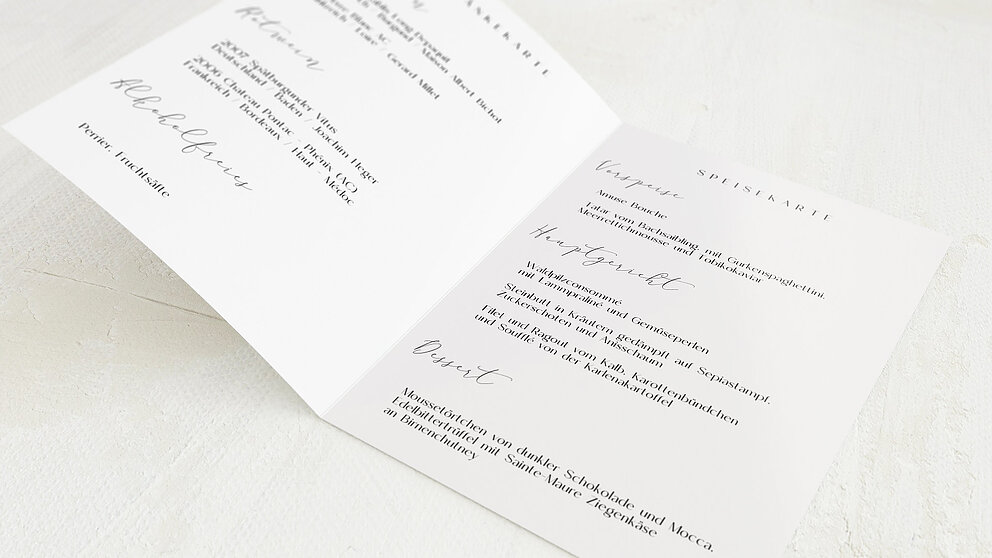 Long Depaquit
Burgund / Maison Albert Bichot
Blanc AC
Loire / Gerard Millet
Rotwein
2007 Spätburgunder Vitus
Deutschland / Baden / Joachim Heger
2006 Chateau Pontac - Phénix (AC)
Frankreich / Bordeaux / Haut - Médoc
Alkoholfreies
Perrier, Fruchtsäfte
SPEISEKARTE
Vorspeise
Amuse Bouche
Tatar vom Bachsaibling, mit Gurkenspaghettini,
Meerrettichmousse und Tobikokaviar
Hauptgericht
Waldpilzconsommé
mit Lammpraliné und Gemüseperlen
Steinbutt in Kräutern gedämpft auf Sepiastampf,
Zuckerschoten und Anisschaum
Filet und Ragout vom Kalb, Karottenbündchen
und Soufflé von der Karlenakartoffel
Dessert
Moussetörtchen von dunkler Schokolade und Mocca,
Edelbittertrüffel mit Sainte-Maure Ziegenkäse
an Birnenchutney